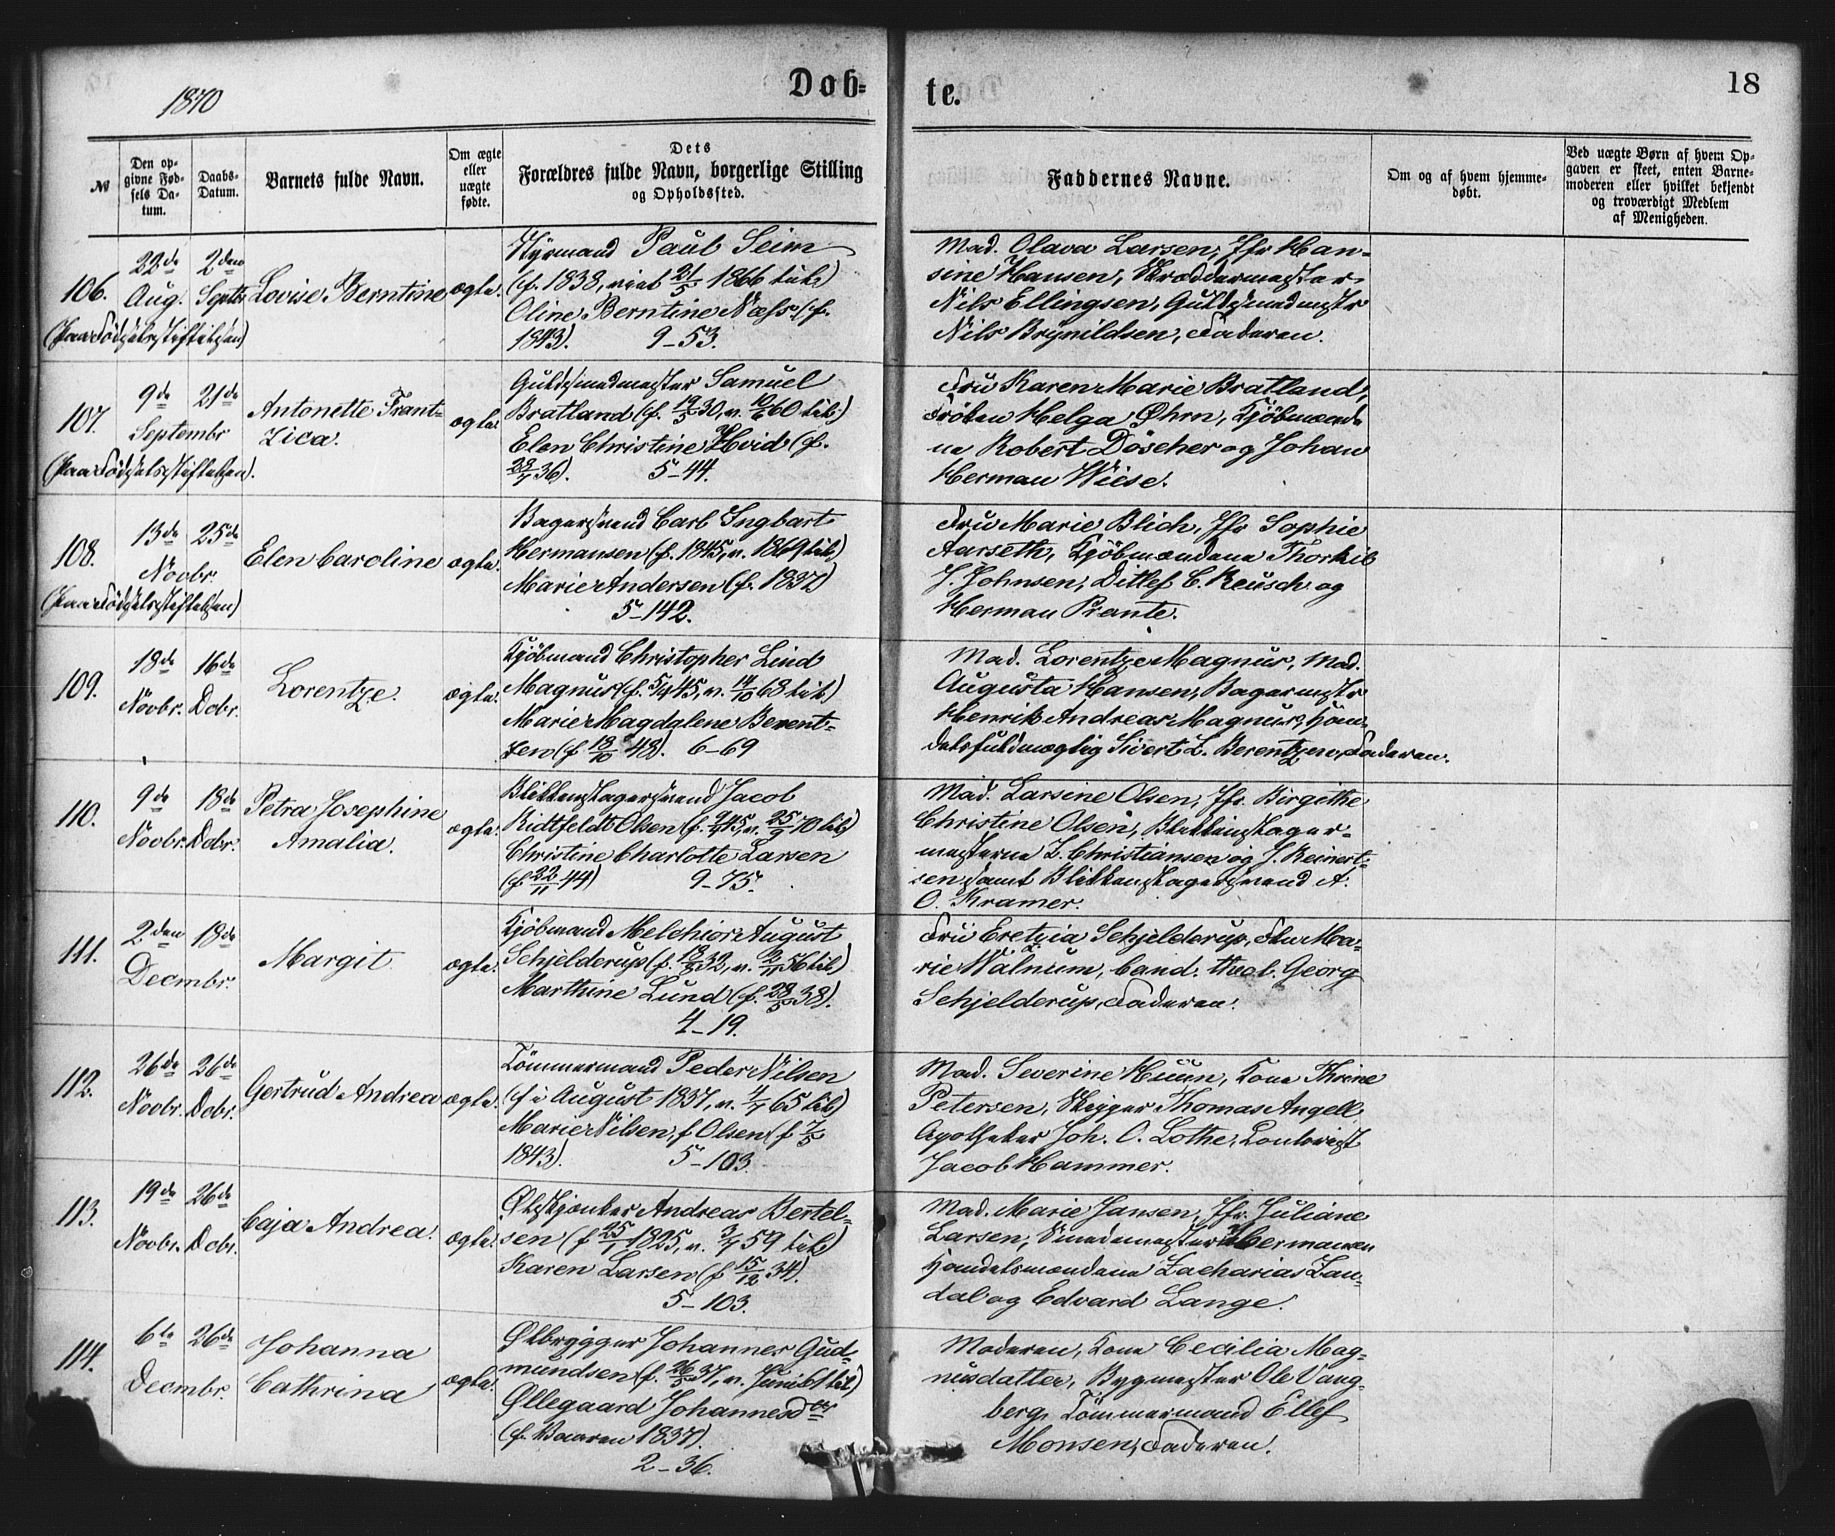 1870
Døb-
te.
18
№
Den op-
givne Fød-
sels Da-
tum.
Daabs-
Datum.
Barnets fulde Navn.
Om ægte
eller
uægte
fødte.
Dets
Forældres fulde Navn, borgerlige Stilling
og Opholdssted.
Faddernes Navne.
Om og af hvem hjemme-
døbt.
Ved uægte Børn af hvem Op-
gaven er skeet, enten Barne-
moderen eller hvilket bekjendt
og troværdigt Medlem
af Menigheden.
106.
22de
Aug.
2den
Septbr
Lovise Berntine
ægte.
Styrmand Paul Seim
(f. 1838, viet 21/5 1866 til)
Oline Berntine Næss (f.
1843). 9-53.
(Paa Fødselsstiftelsen)
Mad. Olava Larsen, Jfr Han-
sine Hansen, Skræddermester
Nils Ellingsen, Guldsmedmestr
Nils Brynildsen, Faderen.
107.
9de 21de
Septembr
Antonette Frant-
zica.
ægte.
Guldsmedmester Samuel
Bratland (f. 19/5 30, v. 10/6 60 til)
Elen Christine Hvid (f.
36). 5-44.
(Paa Fødselsstiftelsen).
Fru Karen Marie Bratland,
Frøken Helga Ohrn, Kjøbmænde
ne Robert Döscher og Johan
Herman Wiese.
108.
13de 25de
Novbr.
Elen Caroline
ægte.
Bagersvend Carl Ingbart
Hermansen (f. 1845, v. 1869 til)
Marie Andersen (f. 1837)
5-142.
(Paa Fødselsstiftelsen)
Fru Marie Blich, Jfr Sophie
Aarseth, Kjøbmændene Thorkil
J. Johnsen, Ditlef C. Reusch og
Herman Prante.
109.
18de
Novbr.
16de
Dcbr.
Lorentze.
ægte.
Kjøbmand Christopher Lind
Magnus (f. 5/4 45, v. 14/10 68 til)
Marie Magdalene Berent-
zen (f. 18/10 48). 6-69
Mad. Lorentze Magnus, Mad.
Augusta Hansen, Bagermestr
Henrik Andreas Magnus, Han-
delsfuldmægtig Sivert L. Berentzen, Faderen.
110.
9de
Novbr.
18de
Dcbr.
Petra Josephine
Amalia.
ægte.
Blikkenslagersvend Jacob
Ridtfeldt Olsen (f. 45, v. 25/9 70 til)
Christine Charlotte Larsen
(f. 22/11 44) 9-75.
Mad. Larsine Olsen, Jfr. Birgithe
Christine Olsen, Blikkenslager-
mesterne L. Christiansen og J. Reinert-
sen samt Blikkenslagersvend A.
O. Kramer.
111.
2den 18de
Decmbr.
Margit
ægte.
Kjøbmand Melchior August
Schjelderup (f. 32, v. 56 til)
Marthine Lund (f. 38).
4-19.
Fru Eretzia Schjelderup, Fru Ma-
rie Walnum, Cand. theol. Georg
Schjelderup, Faderen.
112.
26de
Novbr.
26de
Dcbr.
Gertrud Andrea
ægte.
Tømmermand Peder Nilsen
(f i August 1837, v. 65 til)
Marie Nilsen, f Olsen (f 7/5
1843). 5-103.
Mad. Severine Huun, Kone Thrine
Petersen, Skipper Thomas Angell,
Apotheker Joh. C. Lothe, Contorist
Jacob Hammer.
113.
19de
Novbr.
26de
Dcbr.
Caja Andrea.
ægte.
Ølskjænker Andreas Bertel-
sen (f 25/1 1825, v. 59 til)
Karen Larsen (f 15/12 34).
5-103.
Mad. Marie Jansen, Jfr. Juliane
Larsen, Smedemester Hermansen
Handelsmændene Zacharias Lan-
dal og Edvard Lange.
114.
6te 26de
Decmbr.
Johanna
Cathrina
ægte.
Ølbrygger Johannes Gud-
mundsen (f. 26/5 37, v. Juni 61 til)
Øllegaard Johannesdtr
(f. Vaaren 1837).
2-36.
Moderen, Kone Cecilia Mag-
nusdatter, Bygmester Ole Vang-
berg, Tømmermand Ellef
Monsen, Faderen.